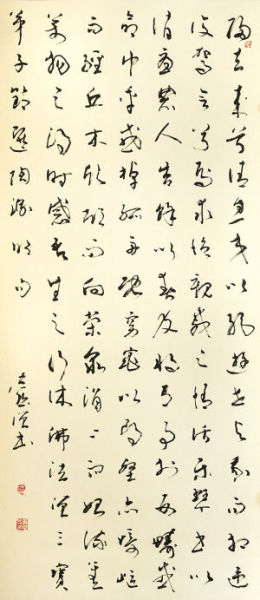 歸去来兮請息交以絕遊世与我而相違
復駕言兮焉求悅親戚之情話樂琴書以
消憂農人告余以春及將有事於西疇或
命巾車或棹孤舟既窈窕以尋壑亦崎嶇
而經丘木欣欣而向榮泉涓〻而始流善
萬物之得時感吾生之行休佛法僧三寶
弟子節選陶淵明句
書